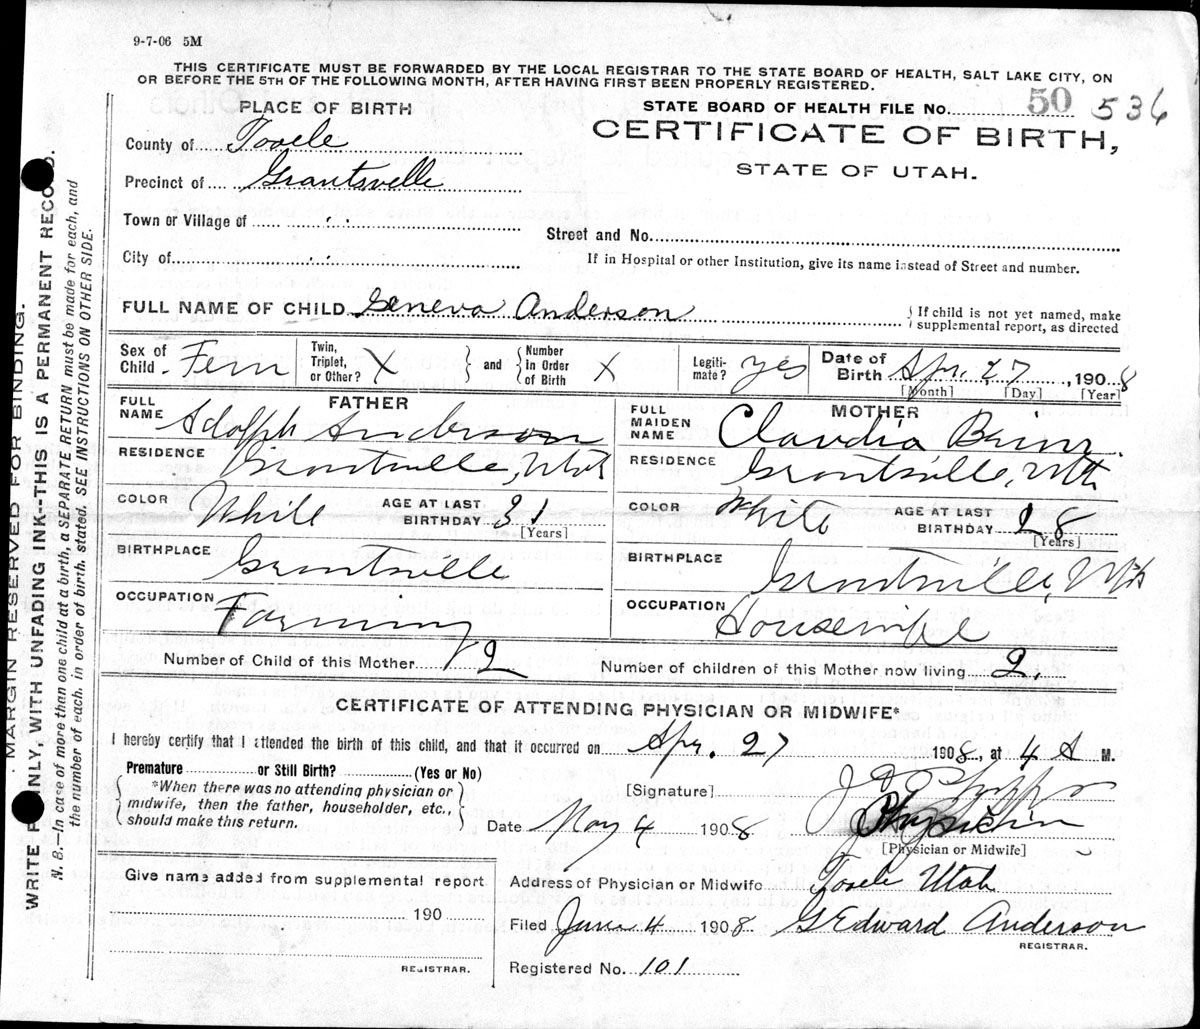 9-7-06 5M
THIS CERTIFICATE MUST BE FORWARDED BY THE LOCAL REGISTRAR TO THE STATE BOARD OF HEALTH, SALT LAKE CITY, ON
OR BEFORE THE 5TH OF THE FOLLOWING MONTH, AFTER HAVING FIRST BEEN PROPERLY REGISTERED.
PLACE OF BIRTH
STATE BOARD OF HEALTH FILE NO. 50 536
CERTIFICATE OF BIRTH,
STATE OF UTAH.
County of Tooele
Precinct of Grantsville
Town or Village of
Street and No.
City of
If in Hospital or other Institution, give its name instead of Street and number.
FULL NAME OF CHILD Geneva Anderson
{If child is not yet named, make
supplemental report, as directed
Sex of Child Fem
Twin, Triplet, or Other? X } and { Number In Order of Birth X
Legiti-mate? yes
Date of Birth Apr. 27, 1908
[Month] [Day] [Year]
FATHER
FULL NAME Adolph Anderson
RESIDENCE Grantsville, Utah
COLOR White
AGE AT LAST BIRTHDAY 31
[Years]
BIRTHPLACE Grantsville
OCCUPATION Farming
MOTHER
FULL MAIDEN NAME Claudia
RESIDENCE Grantsville, Uth
COLOR White
AGE AT LAST BIRTHDAY 28
[Years]
BIRTHPLACE Grantsville, Uth
OCCUPATION Housewife
Number of Child of this Mother 2
Number of children of this Mother now living 2.
CERTIFICATE OF ATTENDING PHYSICIAN OR MIDWIFE*
I hereby certify that I attended the birth of this child, and that it occurred on Apr. 27 1908, at 4 A M.
Premature or Still Birth? (Yes or No)
{*When there was no attending physician or
midwife, then the father, householder, etc.,
should make this return.}
[Signature]
Date May 4 1908
Physician
[Physician or Midwife]
Give name added from supplemental report
190
REGISTRAR.
Address of Physician or Midwife Tooele Utah
Filed June 4 1908 G Edward Anderson
REGISTRAR.
Registered No. 101
MARGIN RESERVED FOR BINDING.
WRITE PLAINLY, WITH UNFADING INK--THIS IS A PERMANENT RECORD.
N. B.—In case of more than one child at a birth, a SEPARATE RETURN must be made for each, and
the number of each, in order of birth, stated. SEE INSTRUCTIONS ON OTHER SIDE.